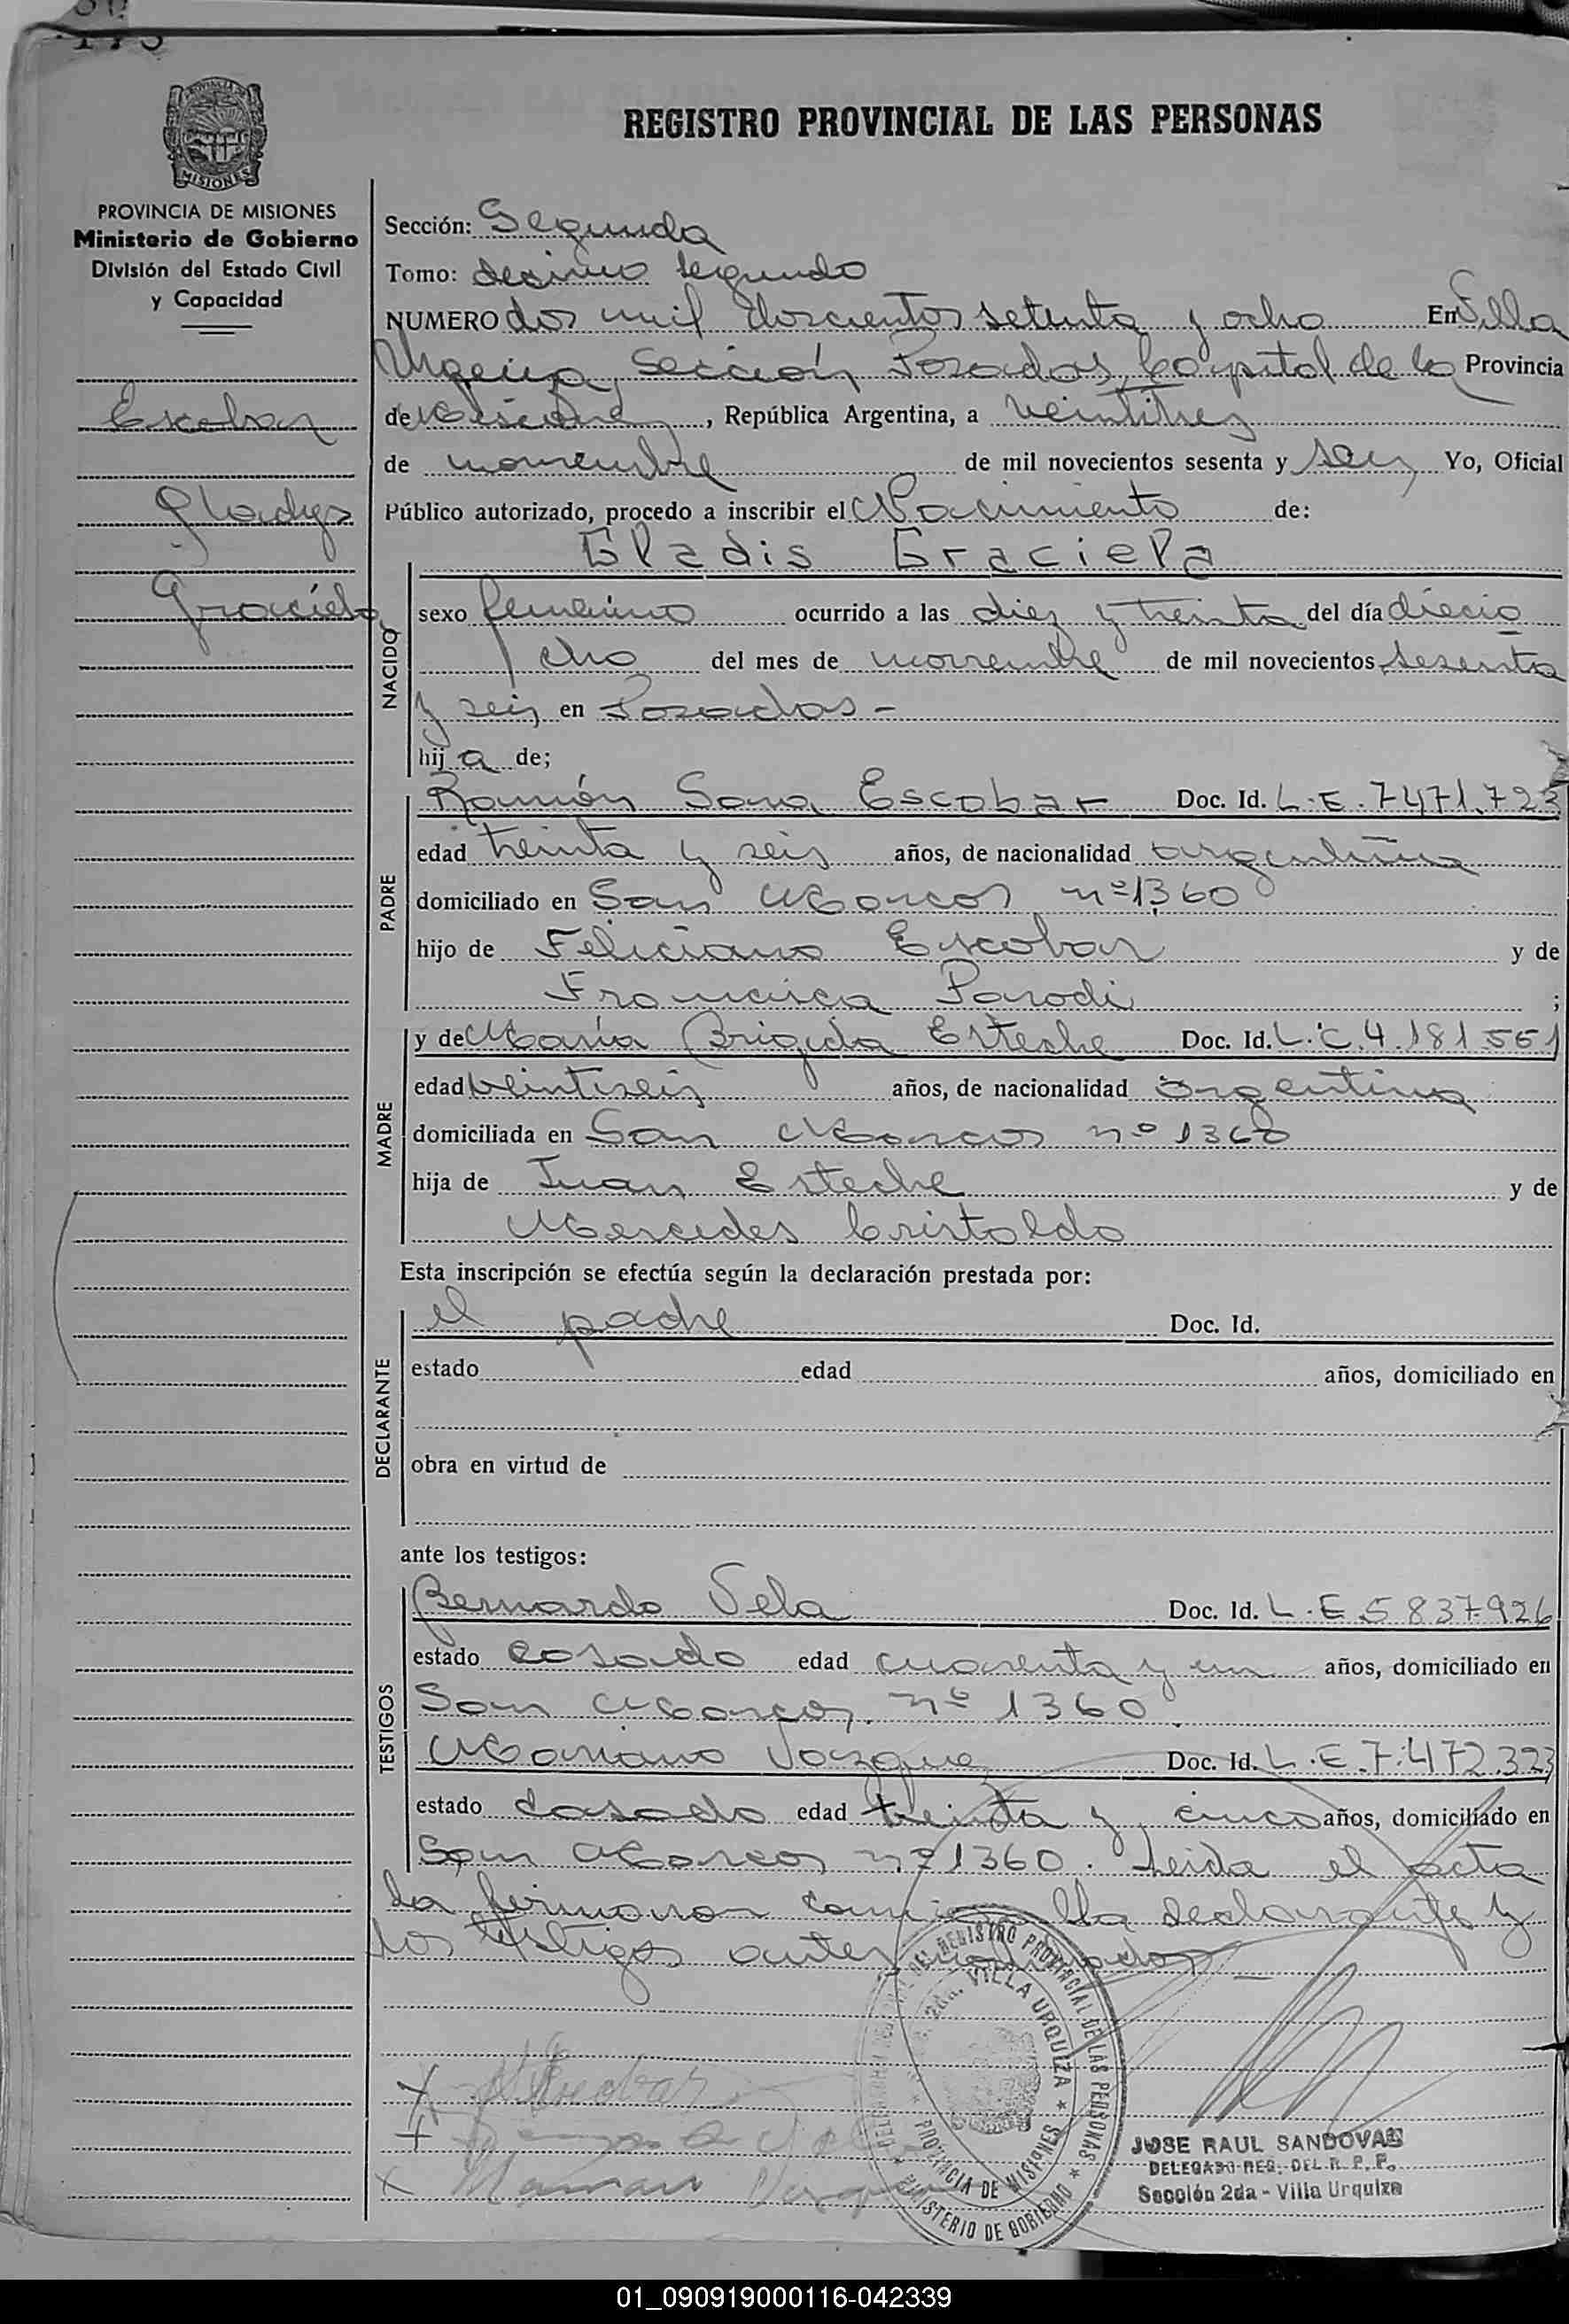 REGISTRO PROVINCIAL DE LAS PERSONAS
MISIONES
PROVINCIA DE MISIONES
Ministerio de Gobierno
División del Estado Civil
y Capacidad
Escobar
Gladys
Graciela
Sección: Segunda
Tomo: decimo segundo
NUMERO dos mil doscientos setenta y ocho En Villa
Urquiza, Sección Posadas, Capital de la Provincia
de Misiones, República Argentina, a veintitres
de noviembre de mil novecientos sesenta y seis Yo, Oficial
Público autorizado, procedo a inscribir el Nacimiento de:
Gladis Graciela
NACIDO
sexo femenino ocurrido a las diez y treinta del día diecio
cho del mes de noviembre de mil novecientos sesenta
y seis en Posadas -
hija de;
PADRE
Ramón Escobar Doc. Id. L.E. 7471.723
edad treinta y seis años, de nacionalidad argentina
domiciliado en San Marcos nº 1360
hijo de Feliciano Escobar y de
Francisca Parodi ;
MADRE
y de María Brigida Esteche Doc. Id. L.C. 4.181551
edad veintiseis años, de nacionalidad argentina
domiciliada en San Marcos nº 1360
hija de Juan Esteche y de
Mercedes Cristaldo
Esta inscripción se efectúa según la declaración prestada por:
DECLARANTE
el padre Doc. Id.
estado edad años, domiciliado en
obra en virtud de
ante los testigos:
TESTIGOS
Bernardo Vela Doc. Id. L.E 5837926
estado casado edad cuarenta y un años, domiciliado en
San Marcos nº 1360
Mariano Vazque Doc. Id. L.E. 7.472.323
estado casado edad treinta y cinco años, domiciliado en
San Marcos nº 1360. Leida el acta
la firmaron declarante y
los testigos antes
DEL REGISTRO PROVINCIAL DE LAS PERSONAS
2da. VILLA URQUIZA
PROVINCIA DE MISIONES
MINISTERIO DE GOBIERNO
Escobar
Mariano
JOSE RAUL SANDOVAL
DELEGADO REG. DEL R. P. P.
Sección 2da - Villa Urquiza
01_090919000116-042339